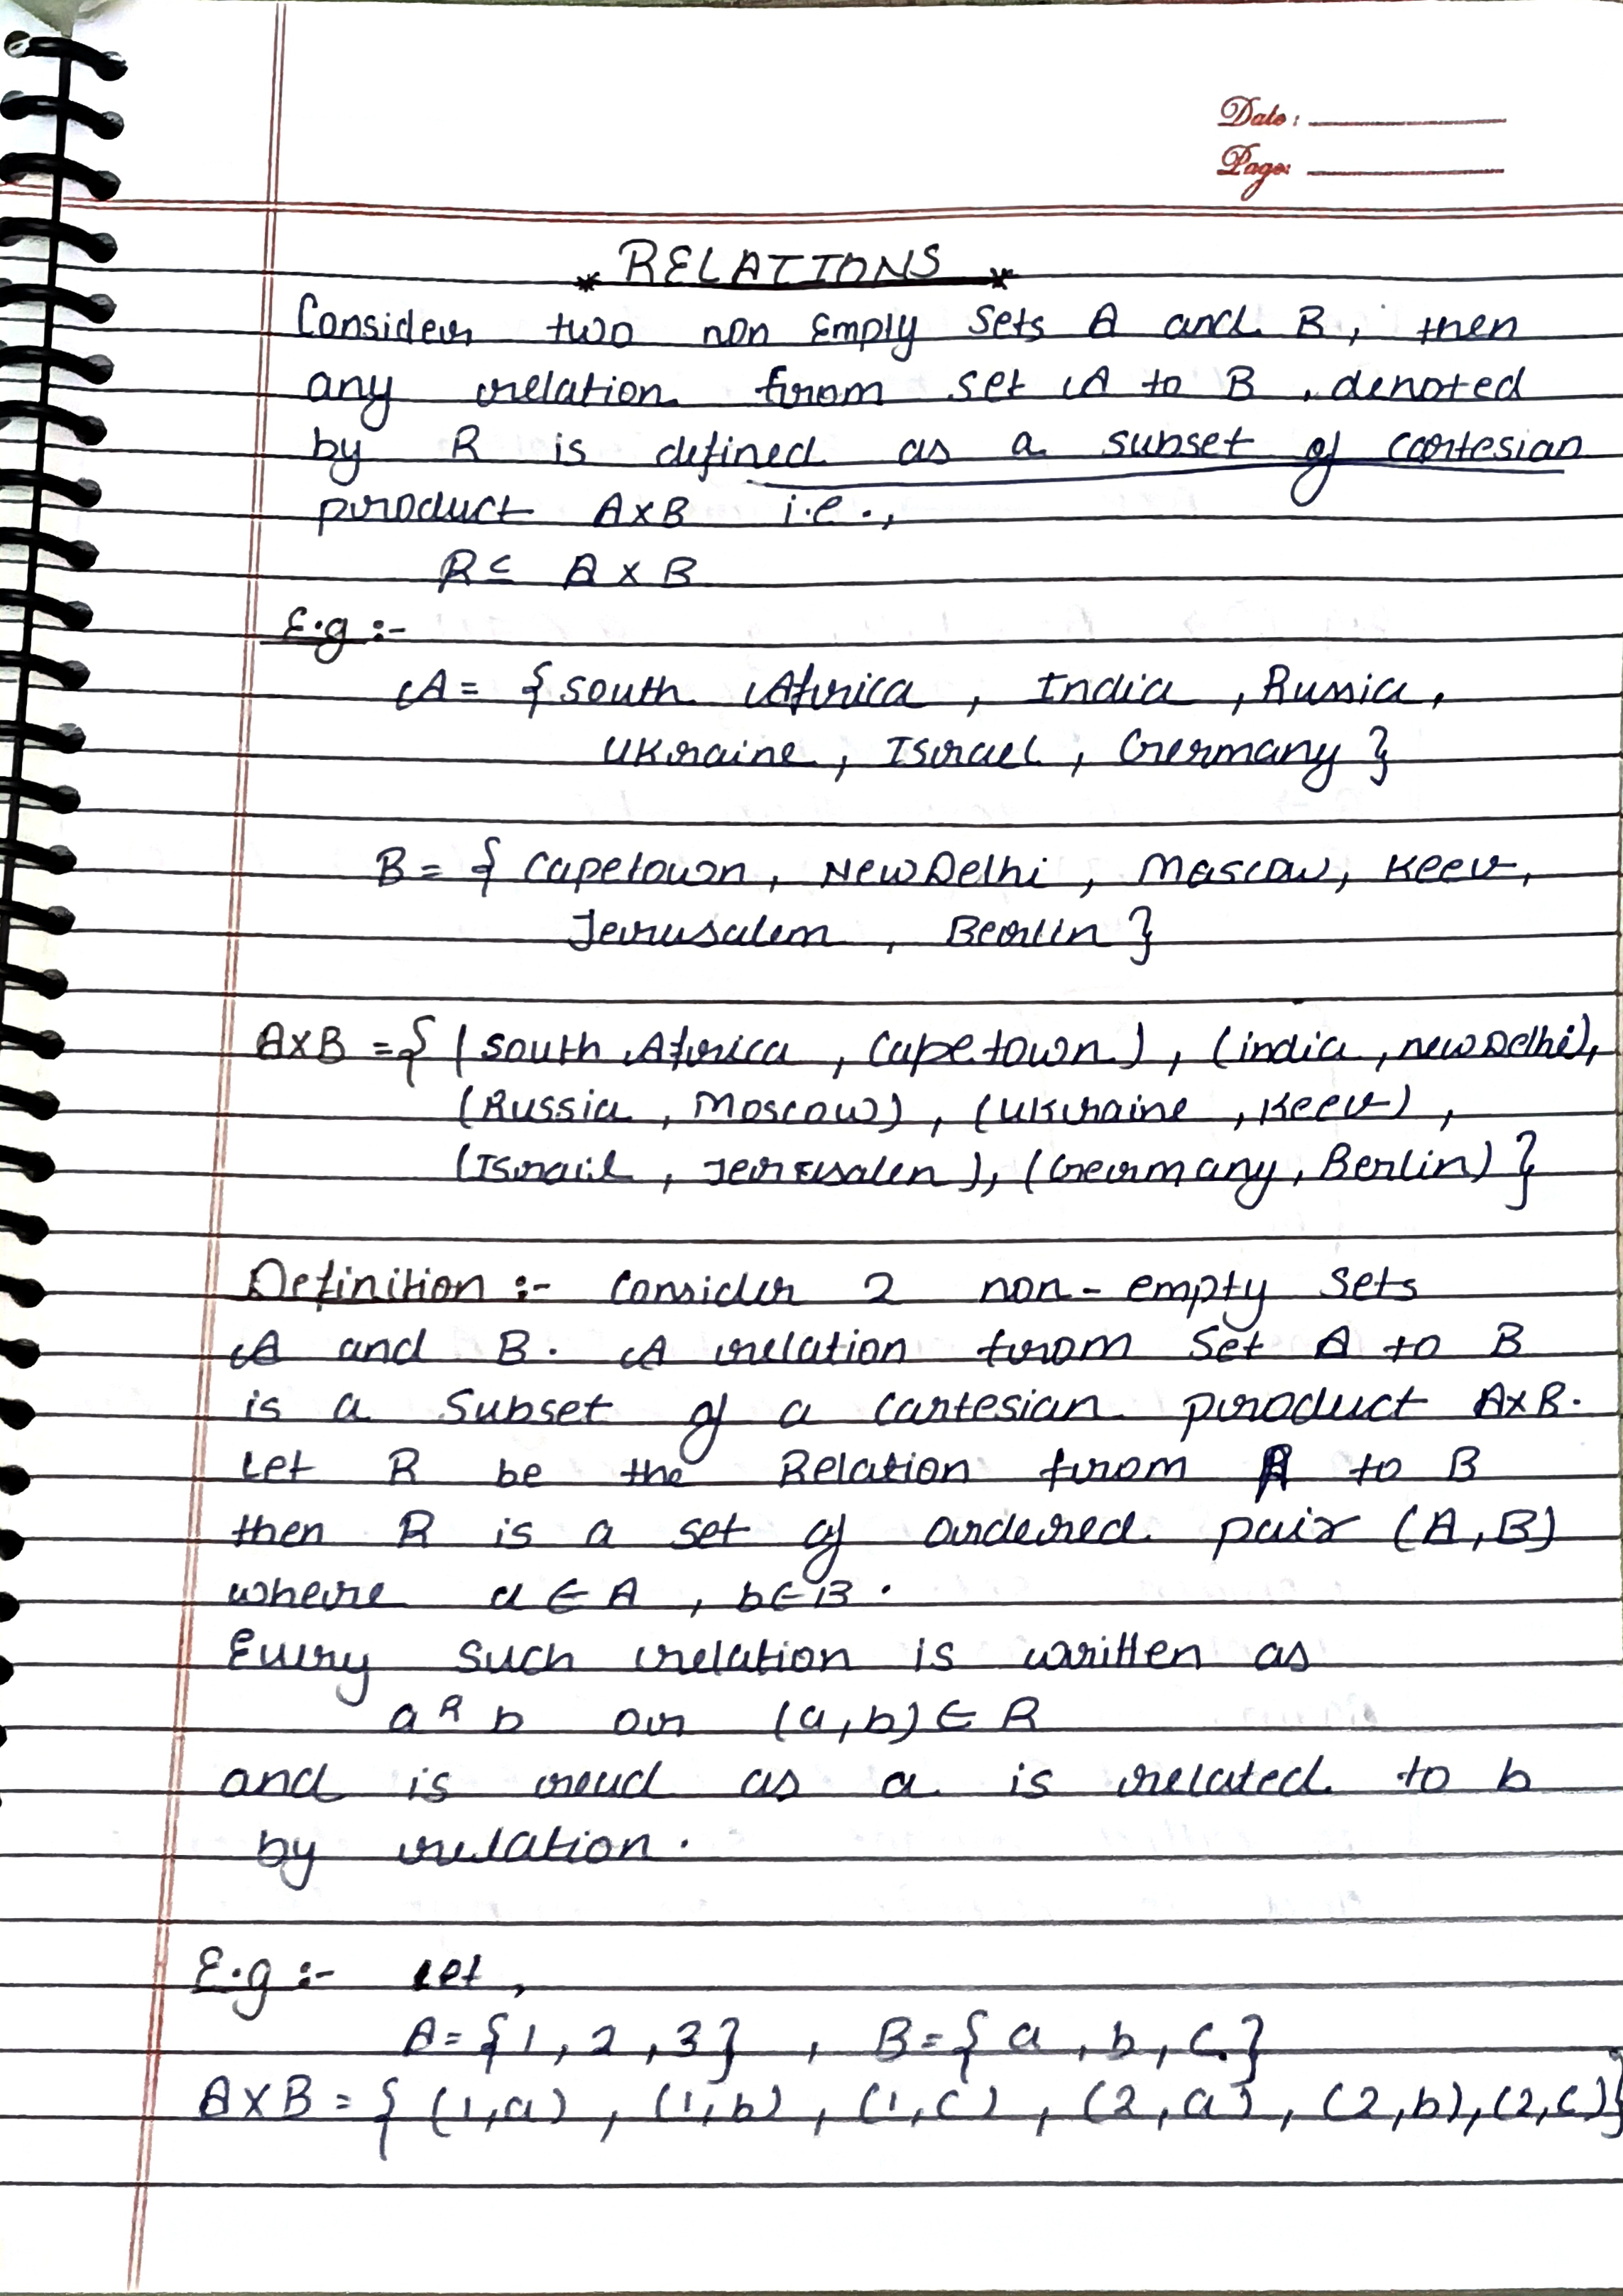 Date:
Page:
* RELATIONS *
Consider two non Emply sets A and B, then
any relation from set A to B, denoted
by R is defined as a subset of cartesian
product A×B i.e.,
R⊆ A × B
E.g :-
A = {south Africa, India, Russia,
Ukraine, Israel, Germany }
B = { Capetown, New Delhi, Mascow, Keev,
Jerusalem, Berlin }
A×B = { (south Africa, Capetown), (india, new Delhi),
(Russia, Moscow), (Ukraine, Keev),
(Israil, Jerusalen), (Germany, Berlin) }
Definition :- Consider 2 non-empty sets
A and B. A relation from Set A to B
is a Subset of a cartesian product A×B.
Let R be the Relation from A to B
then R is a set of ordered pair (A,B)
where a ∈ A, b∈B.
Every such relation is written as
a R b or (a,b) ∈ R
and is read as a is related to b
by relation.
E.g :- Let,
A = {1, 2, 3}, B = { a, b, c }
A×B = { (1,a), (1,b), (1,c), (2,a), (2,b), (2,c)}